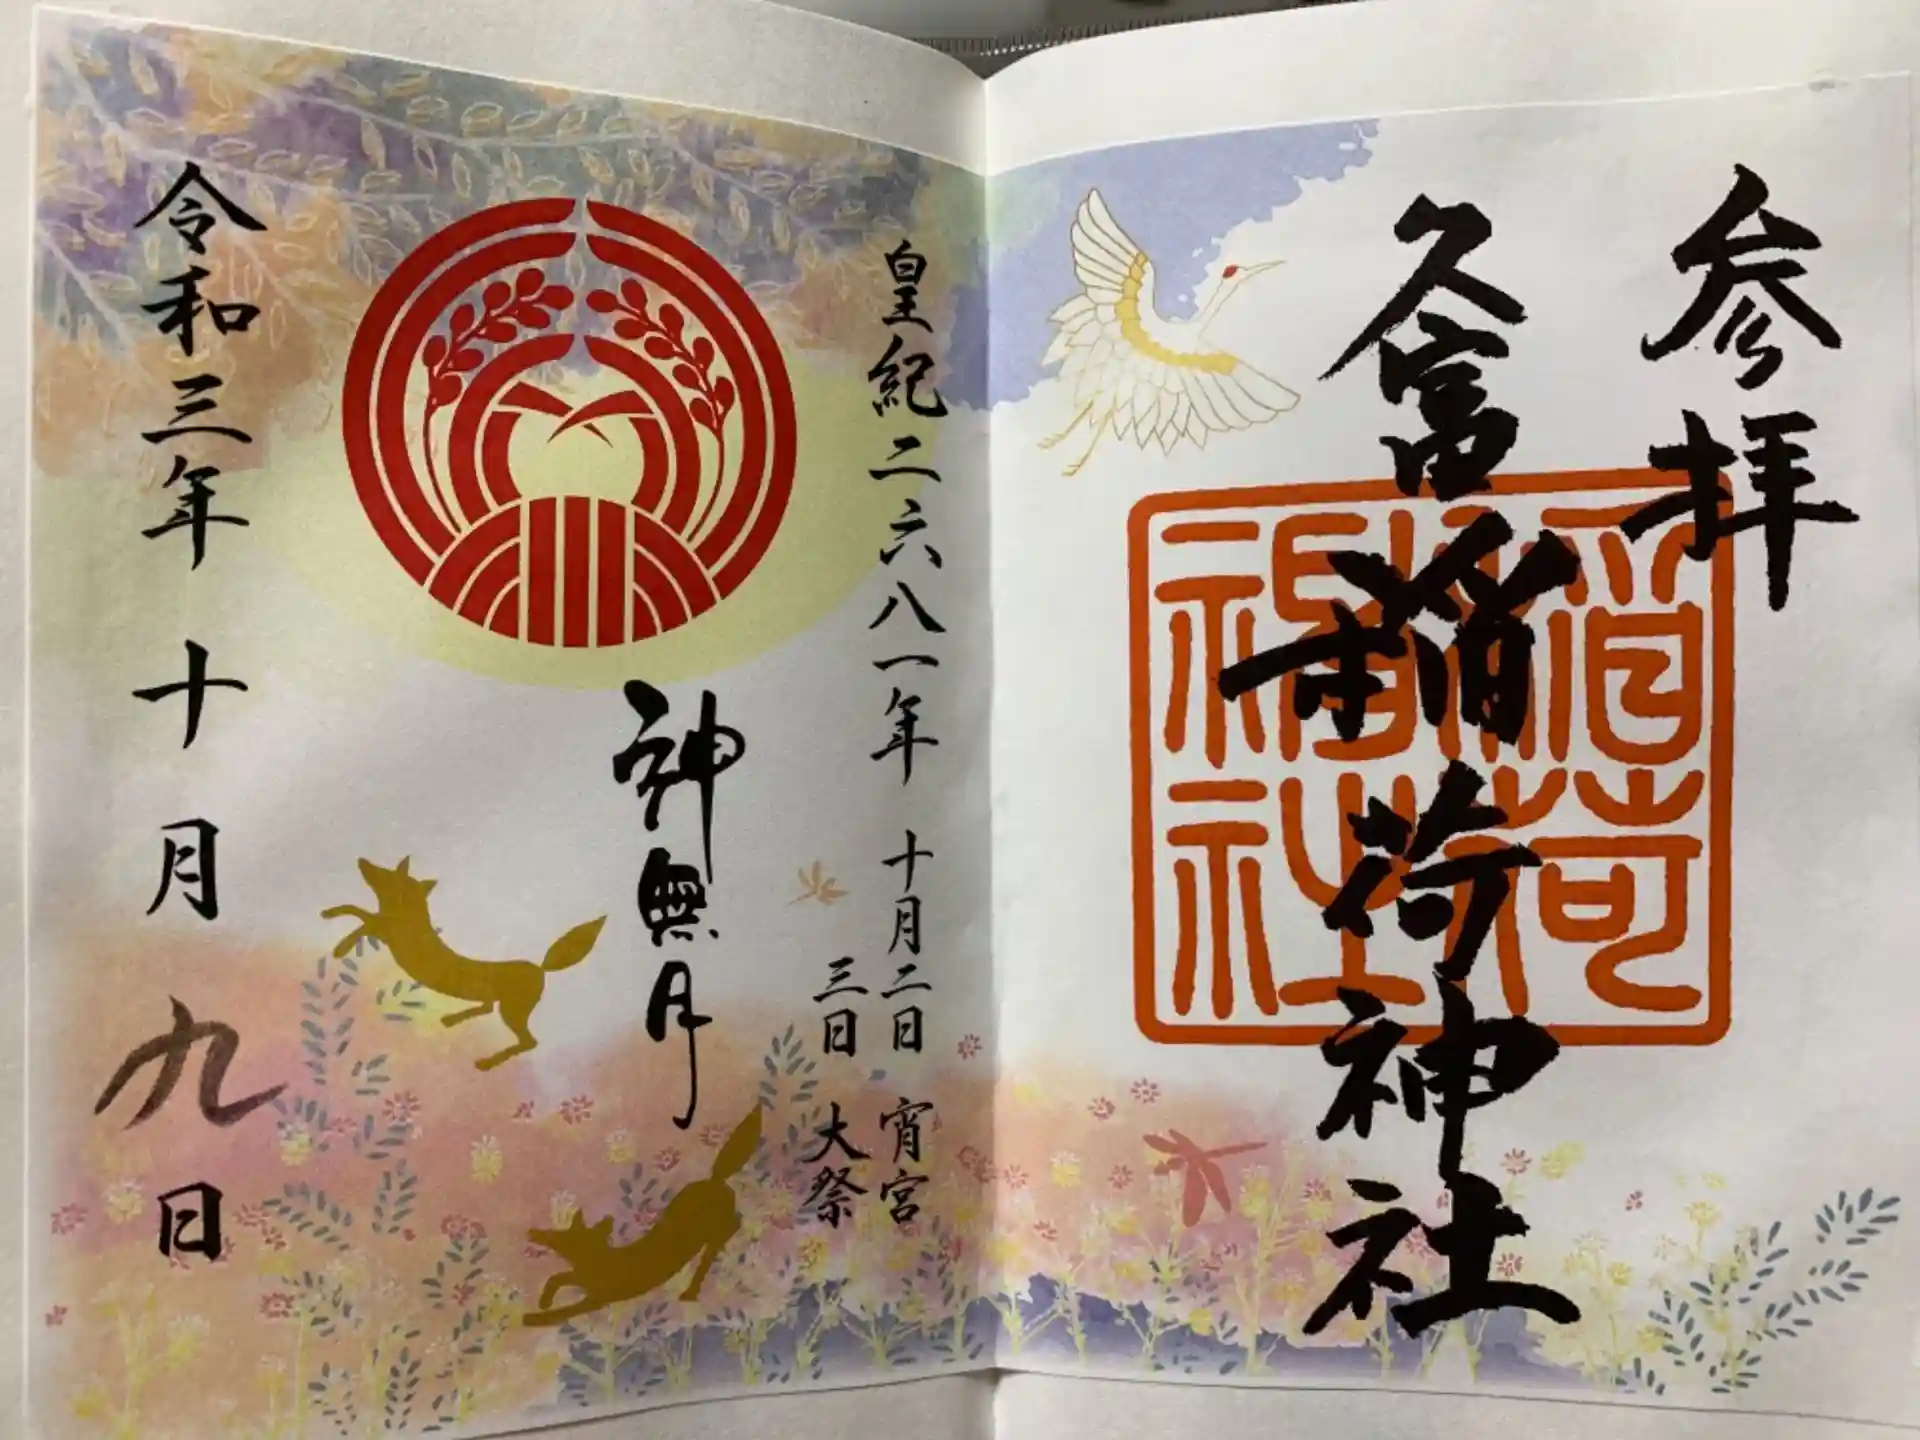 参拝
久富稲荷神社
稲荷神社
皇紀二六八一年 十月二日 宵宮
三日 大祭
神無月
令和三年 十月 九日